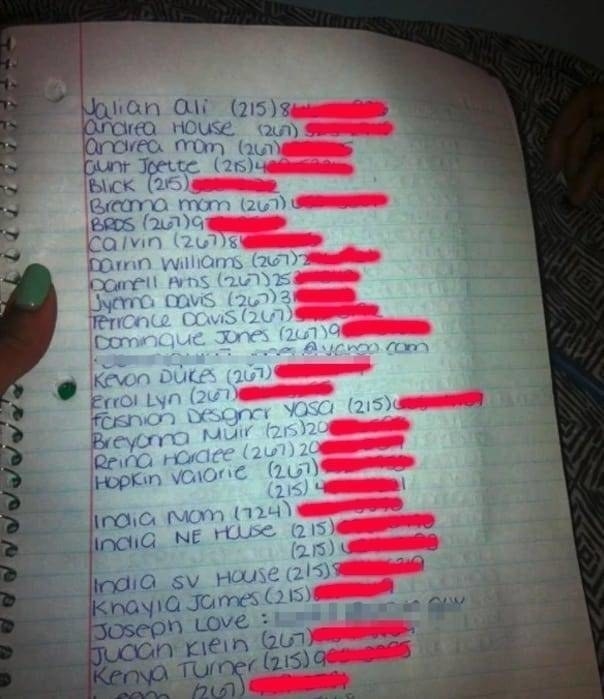 Jalian Ali (215)8
Andrea House (267)
Andrea mom (267)
Aunt Joette (215)4
Blick (215)
Breanna mom (267)
BROS (267)9
Calvin (267)8
Darrin Williams (267)2
Darnell Arns (267)25
Jyema Davis (267)3
Terrance Davis (267)
Dominque Jones (267)9
@yahoo.com
Kevon Dukes (267)
Errol Lyn (267)
Fashion Designer Yasa (215)
Breyanna Muir (215)20
Reina Hardee (267)20
Hopkin Valarie (267)
(215) 4
India Mom (724)
India NE House (215)
(215)
India SV House (215)8
Khayla James (215)
Joseph Love :
Judan Klein (267)
Kenya Turner (215)9
(267)